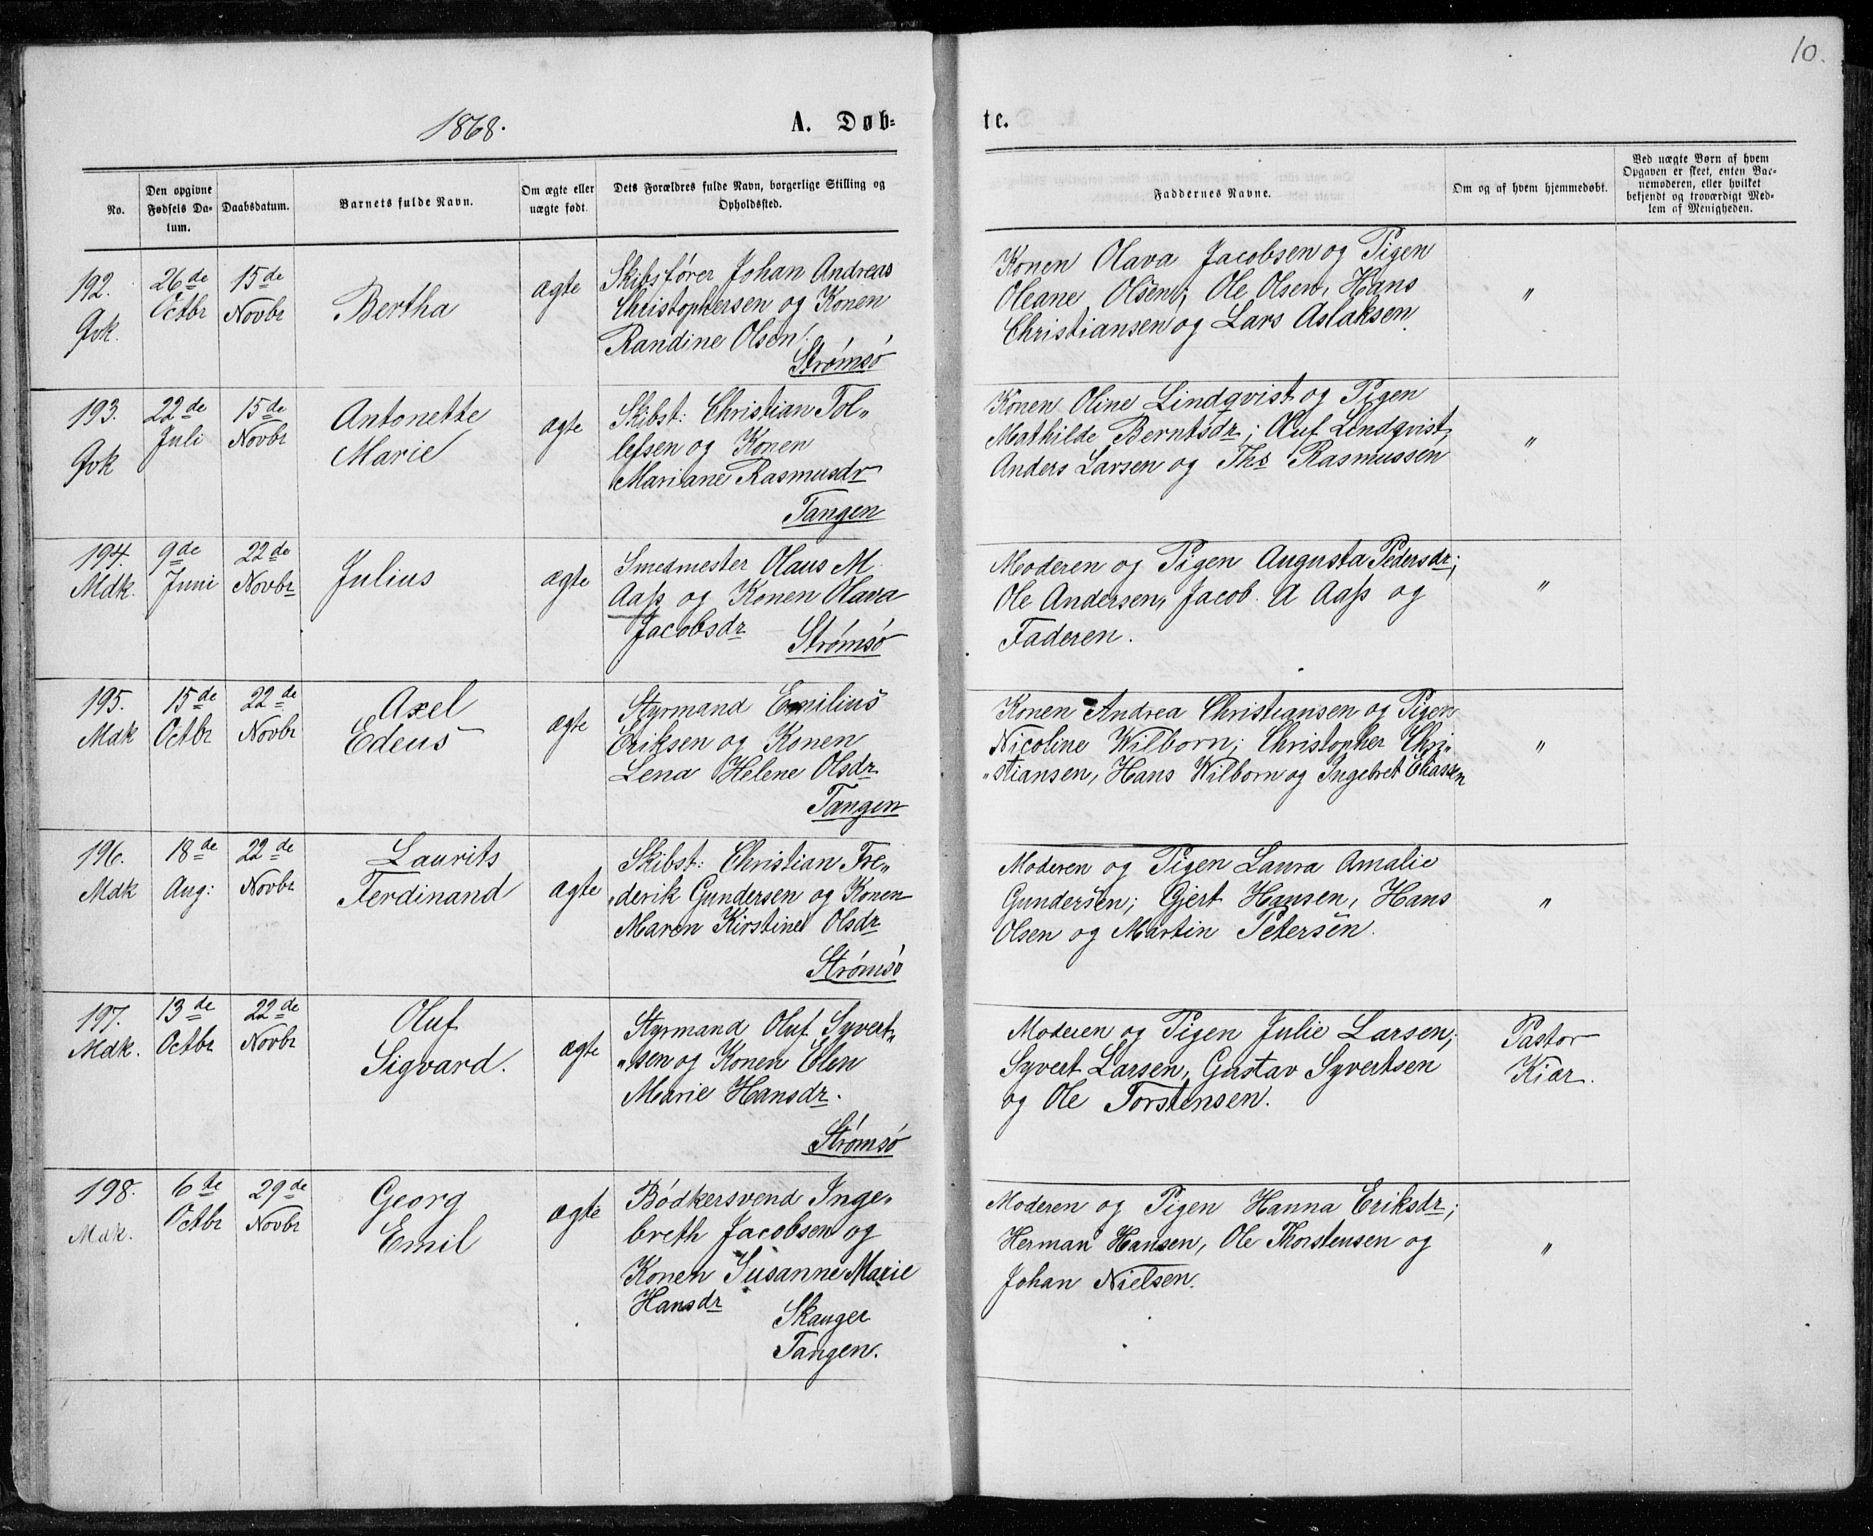 10.
1868.
A. Døb-
te.
No.
Den opgivne Fødsels Da-tum.
Daabsdatum.
Barnets fulde Navn.
Om ægte eller uægte født.
Dets Forældres fulde Navn, borgerlige Stilling og Opholdssted.
Faddernes Navne.
Om og af hvem hjemmedøbt.
Ved uægte Børn af hvem Opgaven er skeet, enten Bar-nemoderen, eller hvilket bekjendt og troværdigt Med-lem af Menigheden.
192.
Qvk.
26de
Octbr
15de
Novbr
Bertha
ægte
Skibsfører Johan Andreas
Christophersen og Konen
Randine Olsen
Strømsø
Konen Olava Jacobsen og Pigen
Oleane Olsen; Ole Olsen, Hans
Christiansen og Lars Aslaksen.
"
193.
Qvk
22de
Juli
15de
Novbr
Antonette
Marie
ægte
Skibst: Christian Tol-
lefsen og Konen
Mariane Rasmusdr
Tangen
Konen Oline Lindqvist og Pigen
Mathilde Berntsdr; Oluf Lindqvist,
Anders Larsen og Ths Rasmussen
"
194.
Mdk.
9de
Juni
22de
Novbr
Julius
ægte
Smedmester Olaus M.
Aass og Konen Olava
Jacobsdr
Strømsø
Moderen og Pigen Augusta Pedersdr;
Ole Andersen, Jacob. A Aass og
Faderen.
"
195.
Mdk
15de
Octbr
22de
Novbr
Axel
Edeus
ægte
Styrmand Emilius
Eriksen og Konen
Lena Helene Olsdr
Tangen
Konen Andrea Christiansen og Pigen
Nicoline Wilborn; Christopher Chri-
stiansen, Hans Wilborn og Ingebret Eliassen
"
196.
Mdk
18de
Aug:
22de
Novbr
Laurits
Ferdinand
ægte
Skibst: Christian Fre-
derik Gundersen og Konen
Maren Kirstine Olsdr
Strømsø
Moderen og Pigen Laura Amalie
Gundersen; Gjert Hansen, Hans
Olsen og Martin Petersen.
"
197.
Mdk.
13de
Octbr
22de
Novbr
Oluf
Sigvard.
ægte
Styrmand Oluf Syvert-
sen og Konen Elen
Marie Hansdr.
Strømsø
Moderen og Pigen Julie Larsen;
Syvert Larsen, Gustav Syvertsen
og Ole Torstensen.
Pastor
Kiær.
198.
Mdk.
6de
Octbr
29de
Novbr
Georg
Emil
ægte
Bødkersvend Inge-
breth Jacobsen og
Konen Susanne Marie
Hansdr
Skauger
Tangen.
Moderen og Pigen Hanna Eriksdr;
Herman Hansen, Ole Thorstensen og
Johan Nielsen.
"